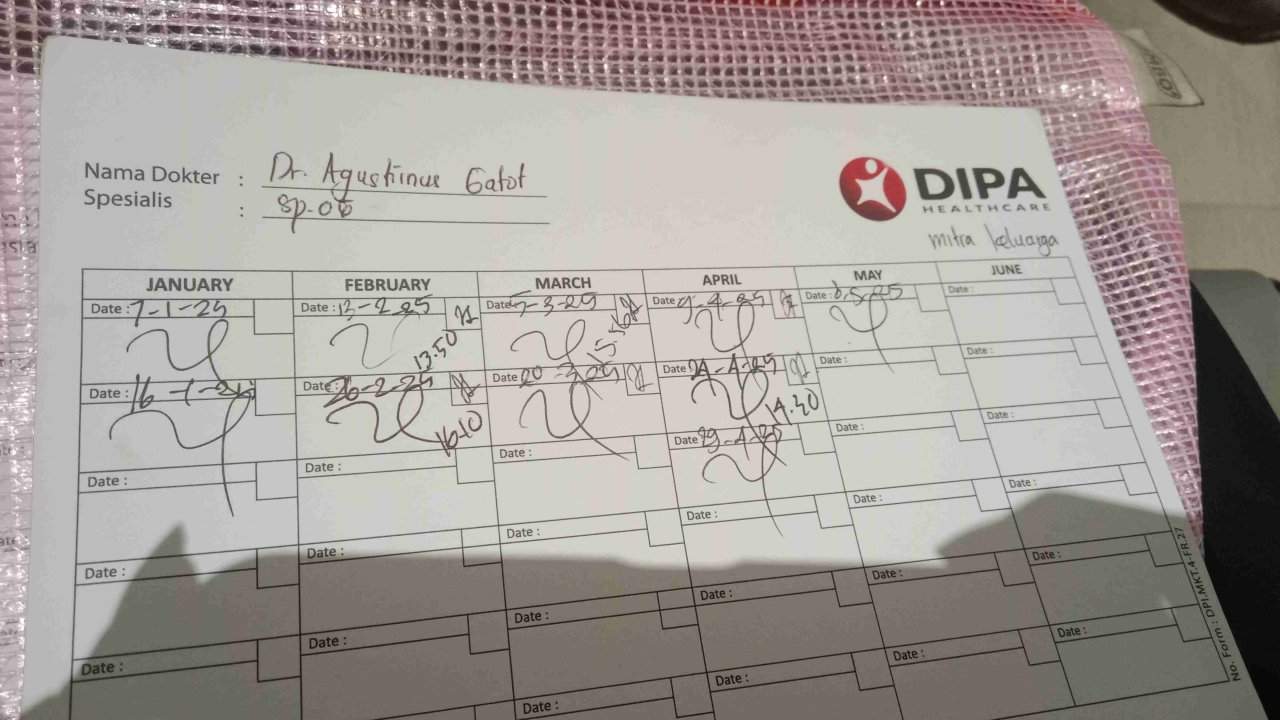 Nama Dokter : Dr. Agustinus Gatot
Spesialis : Sp.OG
DIPA
HEALTHCARE
mitra keluarga
JANUARY FEBRUARY MARCH APRIL MAY JUNE
Date : 7-1-25 Date : 13-2-25 Date 5-3-25 Date 9-4-25 Date : 8-5-25 Date :
13.50
Date : 16-1-25 Date : 26-2-25 Date : 20-3-25 Date : 24-4-25 Date : Date :
16.10 14.30
Date : Date : Date : Date 29-4-25 Date : Date :
Date : Date : Date : Date : Date : Date :
Date : Date : Date : Date : Date : Date :
Date : Date : Date : Date :
No. Form : DPI.MKT.4.FR.27